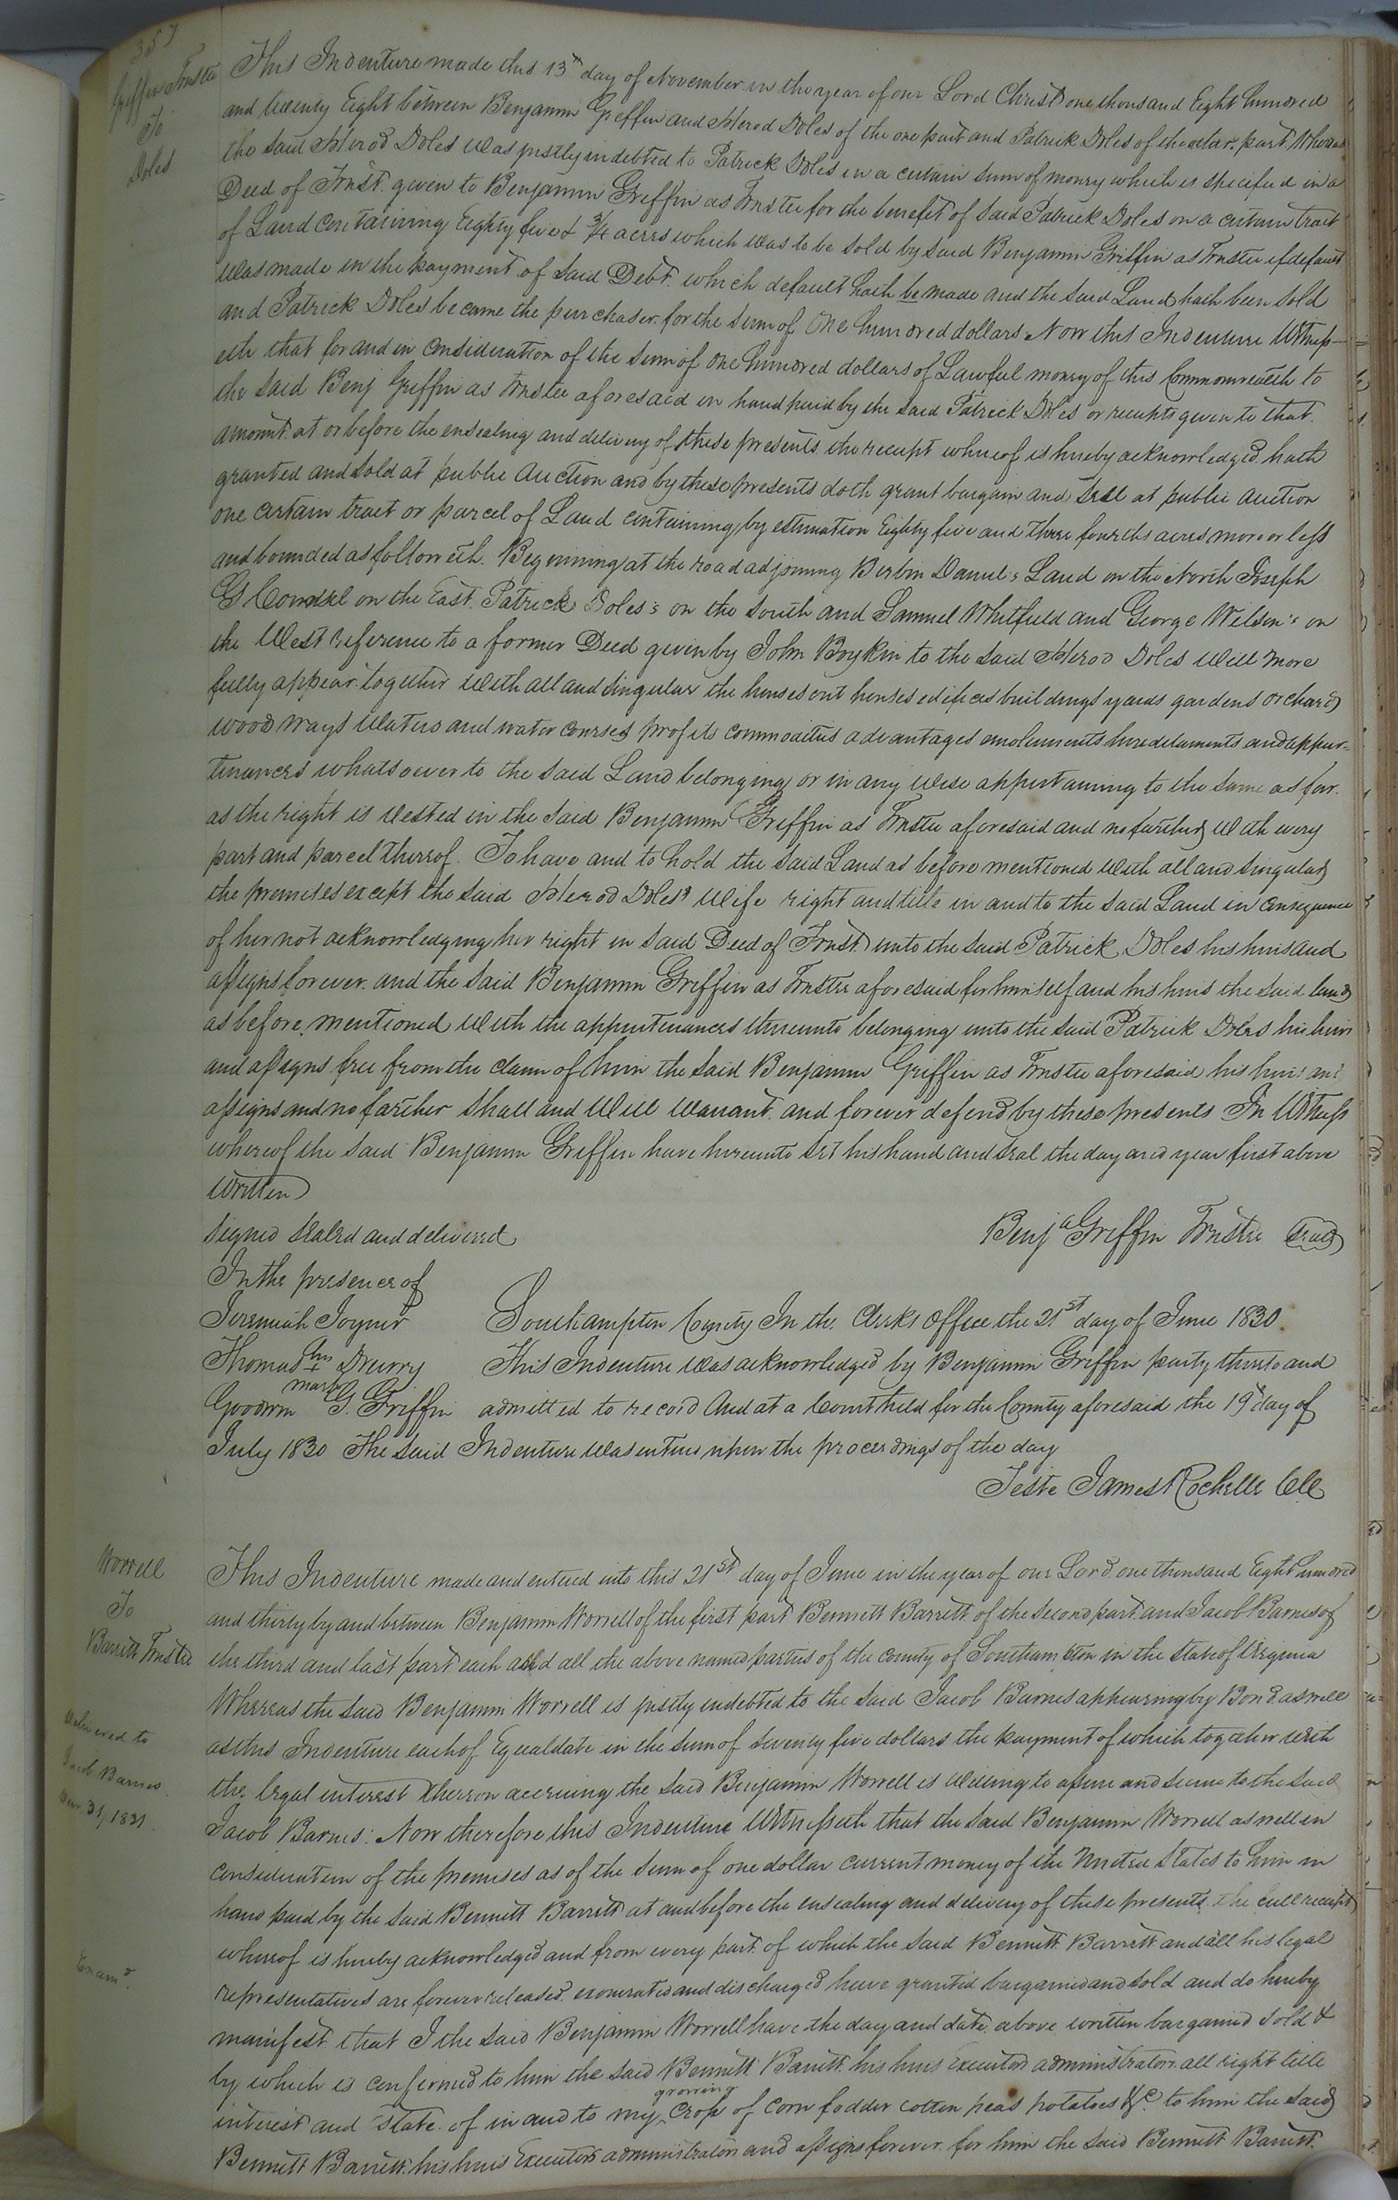 357
Griffin Trustee
To
Doles
This Indenture made this 13th day of November in the year of our Lord Christ one thousand Eight hundred
and twenty Eight between Benjamin Griffin and Herod Doles of the one part and Patrick Doles of the other part Whereas
the said Herod Doles was justly indebted to Patrick Doles in a certain sum of money which is specified in a
Deed of Trust given to Benjamin Griffin as Trustee for the benefit of said Patrick Doles on a certain tract
of Land containing Eighty five & 3/4 acres which was to be sold by said Benjamin Griffin as Trustee if default
was made in the payment of said Debt. which default hath be made and the said Land hath been sold
and Patrick Doles became the purchaser for the sum of One hundred dollars Now this Indenture Witness-
eth that for and in consideration of the sum of one hundred dollars of Lawful money of this Commonwealth to
the said Benj Griffin as trustee aforesaid in hand paid by the said Patrick Doles or receipts given to that
amount at or before the ensealing and delivery of these presents the receipt whereof is hereby acknowledged hath
granted and sold at public Auction and by these presents doth grant bargain and sell at public auction
one certain tract or parcel of Land containing by estimation Eighty five and three fourths acres more or less
and bounded as followeth. Beginning at the road adjoining Daniel's Land on the North Joseph
G on the East. Patrick Doles's on the south and Samuel Whitfield and George Wilson's on
the West reference to a former Deed given by John Boykin to the said Herod Doles will more
fully appear together with all and singular the houses out houses edifices buildings yards gardens orchards
wood ways waters and water courses profits commodities advantages emoluments hereditaments and appur-
tenances whatsoever to the said Land belonging or in any wise appertaining to the same as far
as the right is vested in the said Benjamin Griffin as Trustee aforesaid and no further with every
part and parcel thereof. To have and to hold the said Land as before mentioned with all and singular
the premises except the said Herod Doles' wife right and title in and to the said Land in consequence
of her not acknowledging her right in said Deed of Trust unto the said Patrick Doles his heirs and
assigns forever. and the said Benjamin Griffin as Trustee aforesaid for himself and his heirs the said land
as before mentioned with the appurtenances thereunto belonging unto the said Patrick Doles his heirs
and assigns free from the claim of him the said Benjamin Griffin as Trustee aforesaid his heirs and
assigns and no farther shall and will warrant and forever defend by these presents In Witness
whereof the said Benjamin Griffin have hereunto set his hand and seal the day and year first above
written
Signed sealed and delivered
Benja Griffin Trustee Seal
In the presence of
Jeremiah Joyner
Thomas his Drurry
mark
Goodwin G. Griffin
Southampton County In the Clerks Office the 21st day of June 1830
This Indenture was acknowledged by Benjamin Griffin party thereto and
admitted to record And at a Court held for the County aforesaid the 19th day of
July 1830 The said Indenture was entered upon the proceedings of the day
Teste James Rochelle ClC
Worrell
To
Barrett Trustee
Delivered to
Jacob Barnes
31, 1831
Exam'd
This Indenture made and entered into this 21st day of June in the year of our Lord one thousand Eight hundred
and thirty by and between Benjamin Worrell of the first part Bennett Barrett of the second part and Jacob Barnes of
the third and last part each and all the above named parties of the county of Southampton in the state of Virginia
Whereas the said Benjamin Worrell is justly indebted to the said Jacob Barnes appearing by Bond as well
as this Indenture each of Equal date in the sum of seventy five dollars the payment of which together with
the legal interest thereon accruing the said Benjamin Worrell is willing to assure and secure to the said
Jacob Barnes: Now therefore this Indenture Witnesseth that the said Benjamin Worrell as well in
consideration of the premises as of the sum of one dollar current money of the United States to him in
hand paid by the said Bennett Barrett at and before the ensealing and delivery of these presents the full receipt
whereof is hereby acknowledged and from every part of which the said Bennett Barrett and all his legal
representatives are forever released exonerated and discharged have granted bargained and sold and do hereby
manifest that I the said Benjamin Worrell have the day and date above written bargained sold &
by which is confirmed to him the said Bennett Barrett his heirs Executors administrators all right title
interest and state of in and to my growing Crop of corn fodder cotton peas potatoes &c to him the said
Bennett Barrett his heirs Executors administrators and assigns forever for him the said Bennett Barrett